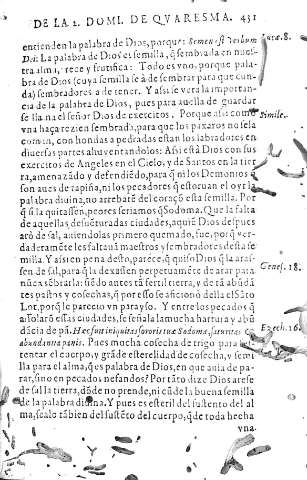 DE LA 2. DOMI. DE QVARESMA. 431
entienden la palabra de Dios, porque: Semen est Verbum
Dei: La palabra de Dios es semilla, q̃ sembrada en nues-
tra alma, rece y frutifica: Todo es vno, porque pala-
bra de Dios (cuya semilla se à de sembrar para que cun-
da) sembradores a de tener. Y assi se vera la importan-
cia de la palabra de Dios, pues para auella de guardar
se llana el señor Dios de exercitos. Porque assi como
vna haça rezien sembrada, para que los paxaros no sela
coman, con hondas a pedradas estan los labradores en
diuersas partes ahuventandolos: Assi està Dios con sus
exercitos de Angeles en el Cielo, y de Santos en la tier
ra, amenazãdo y defendiẽdo, para q̃ ni los Demonios q̃
son aues de rapiña, ni los pecadores q̃ estoruan el oyr la
palabra diuina, no arrebatẽ del coraçõ esta semilla. Por
q̃ si la quitassen, peores seriamos q̃ Sodoma. Que la falta
de aquellas, desuẽturadas ciudades, aquiẽ Dios despues
arò de sal, auiendolas primero quemado, fue, por q̃ ver-
daderamẽte les faltauã maestros y sembradores desta se
milla. Y assi en pena desto, parece, q̃ quiso Dios q̃ la aras-
sen de sal, para q̃ la dexassen perpetuamẽte de arar para
nũca sẽbrarla: siẽdo antes tã fertil tierra, y de tã abũdã
tes pastos y cosechas, q̃ por esso se aficionò della el Sãto
Lot, porq̃ le pareciò vn parayso. Y entre los pecados q̃
assolarõ essas ciudades, se señala la mucha hartura y abũ
dãcia de pã. Hæc fuit iniquitas sororis tuæ Sodomæ, saturitas &
abundantia panis. Pues mucha cosecha de trigo para sus-
tentar el cuerpo, y grãde esterelidad de cosecha, y semi
lla para el alma, q̃ es palabra de Dios, en que auia de pa-
rar, sino en pecados nefandos? Por tãto dize Dios arese
de sal la tierra, dõde no prende, ni cũde la buena semilla
de la palabra diuina. Y pues es esteril del sustento del al
ma, sealo tãbien del sustẽto del cuerpo, q̃ de toda hecha
vna.
Luc. 8.
Simile.
Genes. 18.
Ezech. 16.